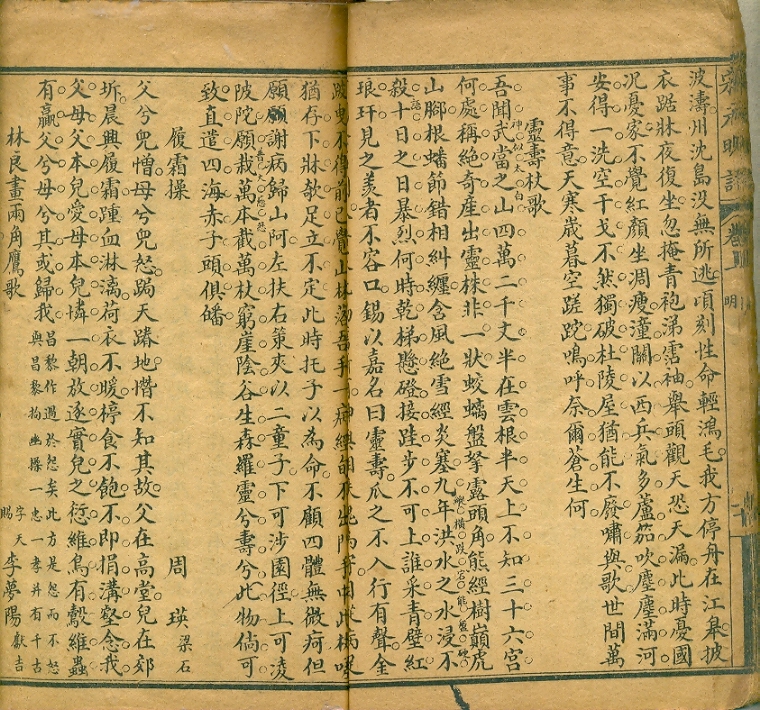 波濤州沈島没無所逃頃刻性命輕鴻毛我方停舟在江皋披
衣踞牀夜復坐忽掩青袍涕霑袖舉頭觀天恐天漏此時憂國
况憂家不覺紅顏坐凋瘦潼關以西兵氣多蘆笳吹塵塵滿河
安得一洗空干戈不然獨破杜陵屋猶能不廢嘯與歌世間萬
事不得意天寒歲暮空蹉跎嗚呼奈爾蒼生何
靈壽杖歌
吾聞武當之山四萬二千丈半在雲根半天上不知三十六宮
神似太白
何處稱絶奇産出靈株非一狀蛟螭盤拏露頭角熊經樹巔虎
山腳根蟠節錯相糾纏含風絶雪經炎塞九年洪水之水浸不
殺十日之日暴烈何時乾梯懸磴接跬步不可上誰采青壁紅
琅玕見之羨者不容口錫以嘉名曰靈壽瓜之不入行有聲金
猶存下牀欹足立不定此時托子以為命不顧四體無微疴但
願願謝病歸山阿左扶右策夾以二童子下可涉園徑上可凌
陂陀願栽萬本截萬杖窮崖陰谷生森羅靈兮壽兮此物倘可
致直遣四海赤子頭俱皤
履霜操 周瑛 梁石
父兮兒憎母兮兒怒跼天蹐地憯不知其故父在高堂兒在郊
坼晨興履霜踵血淋漓荷衣不暖停食不飽不即捐溝壑念我
父母父本兒愛母本兒憐一朝放逐實兒之愆維鳥有鷇維蟲
有蠃父兮母兮其或歸我
昌黎作過於怨矣此方是怨而不怒
與昌黎拘幽操一忠一孝并有千古
林良畫兩角鷹歌 李夢陽
字天賜
獻吉